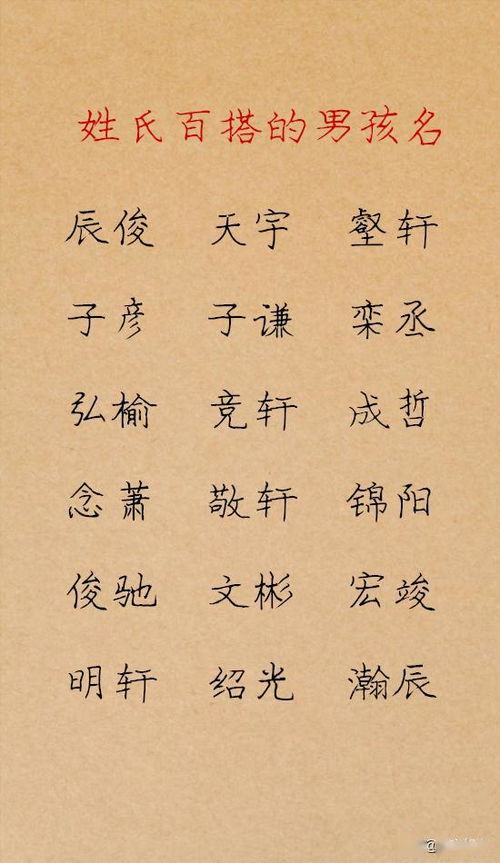 姓氏百搭的男孩名
辰俊 天宇 壑轩
子彦 子谦 栾丞
弘榆 竞轩 成哲
念萧 敬轩 锦阳
俊驰 文彬 宏竣
明轩 绍光 瀚辰